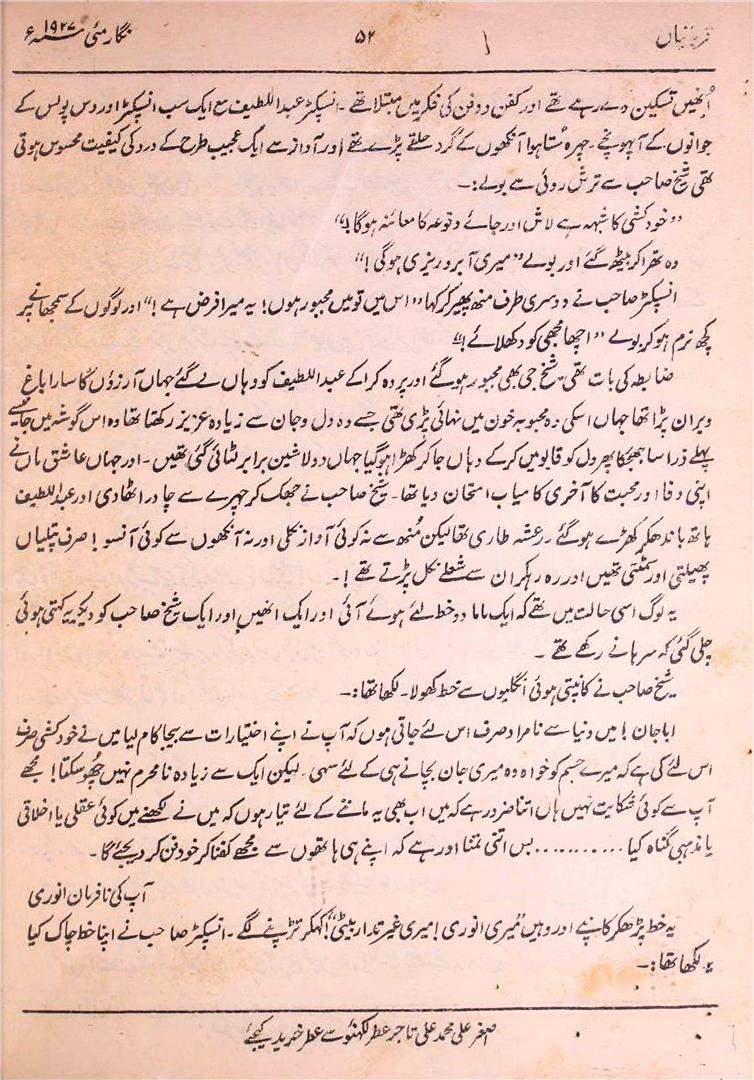 قربانیاں ۵۲ نگار مئی ۱۹۲۷ء
اُنھیں تسکین دے رہے تھے اور کفن و دفن کی فکر میں مبتلا تھے ۔ انسپکٹر عبداللطیف مع ایک سب انسپکٹر اور دس پولس کے
جوانوں کے آپہونچے ۔ چہرہ ستا ہوا آنکھوں کے گرد حلقے پڑے تھے اور آواز سے ایک عجیب طرح کے درد کی کیفیت محسوس ہوتی
تھی شیخ صاحب سے ترش روئی سے بولے :۔
”خودکشی کا شبہہ ہے لاش اور جائے وقوعہ کا معائنہ ہوگا!“
وہ تھرا کر بیٹھ گئے اور بولے ”میری آبرو ریزی ہوگی !“
انسپکٹر صاحب نے دوسری طرف منھ پھیر کر کہا ”اس میں تو میں مجبور ہوں! یہ میرا فرض ہے !“ اور لوگوں کے سمجھانے پر
کچھ نرم ہو کر بولے ”اچھا مجھی کو دکھلائے!“
ضابطہ کی بات تھی شیخ جی بھی مجبور ہو گئے اور پردہ کرا کے عبداللطیف کو وہاں لے گئے جہاں آرزؤں کا سارا باغ
ویران پڑا تھا جہاں اسکی وہ محبوبہ خون میں نہائی پڑی تھی جسے وہ دل و جان سے زیادہ عزیز رکھتا تھا وہ اس گوشہ میں جانیسے
پہلے ذرا سا جھجکا پھر دل کو قابو میں کر کے وہاں جا کر کھڑا ہو گیا جہاں دو لاشین برابر لٹائی گئی تھیں ۔ اور جہاں عاشق ماں نے
اپنی وفا اور محبت کا آخری کامیاب امتحان دیا تھا۔ شیخ صاحب نے جھک کر چہرے سے چادر اٹھا دی اور عبداللطیف
ہاتھ باندھکر کھڑے ہو گئے ۔ رعشہ طاری تھا لیکن مُنھ سے نہ کوئی آواز نکلی اور نہ آنکھوں سے کوئی آنسو ! صرف پتلیاں
پھیلتی اور سمٹتی تھیں اور رہ رہکر ان سے شعلے نکل پڑتے تھے ! ۔
یہ لوگ اسی حالت میں تھے کہ ایک ماما دو خط لئے ہوئے آئی اور ایک انھیں اور ایک شیخ صاحب کو دیکر یہ کہتی ہوئی
چلی گئی کہ سرہانے رکھے تھے ۔
شیخ صاحب نے کانپتی ہوئی انگلیوں سے خط کھولا ۔ لکھا تھا :۔
ابا جان ! میں دنیا سے نامراد صرف اس لئے جاتی ہوں کہ آپ نے اپنے اختیارات سے بیجا کام لیا میں نے خودکشی صرف
اس لئے کی ہے کہ میرے جسم کو خواہ وہ میری جان بچانے ہی کے لئے سہی ۔ لیکن ایک سے زیادہ نامحرم نہیں چھو سکتا! مجھے
آپ سے کوئی شکایت نہیں ہاں اتنا ضرور ہے کہ میں اب بھی یہ ماننے کے لئے تیار ہوں کہ میں نے لکھنے میں کوئی عقلی یا اخلاقی
یا مذہبی گناہ کیا ........... بس اتنی تمنا اور ہے کہ اپنے ہی ہاتھوں سے مجھے کفنا کر خود دفن کر دیجئے گا ۔
آپ کی نافرمان انوری
یہ خط پڑھکر کانپے اور وہیں ”میری انوری ! میری غیرتدار بیٹی“! کہکر تڑپنے لگے ۔ انسپکٹر صاحب نے اپنا خط چاک کیا
یہ لکھا تھا :۔
اصغر علی محمد علی تاجر عطر لکھنؤ سے عطر خرید کیجئے